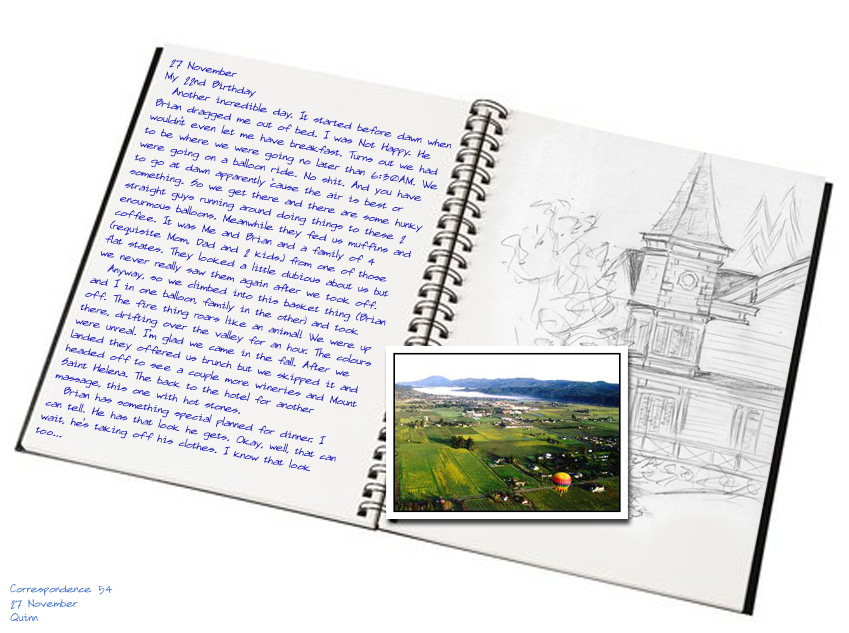 27 November
My 22nd Birthday
Another incredible day. It started before dawn when
Brian dragged me out of bed. I was Not Happy. He
wouldn't even let me have breakfast. Turns out we had
to be where we were going no later than 6:30AM. We
were going on a balloon ride. No shit. And you have
to go at dawn apparently 'cause the air is best or
something. So we get there and there are some hunky
straight guys running around doing things to these 2
enormous balloons. Meanwhile they fed us muffins and
coffee. It was Me and Brian and a family of 4
(requisite Mom, Dad and 2 kids) from one of those
flat states. They looked a little dubious about us but
we never really saw them again after we took off.
Anyway, so we climbed into this basket thing (Brian
and I in one balloon, family in the other) and took
off. The fire thing roars like an animal! We were up
there, drifting over the valley for an hour. The colours
were unreal. I'm glad we came in the fall. After we
landed they offered us brunch but we skipped it and
headed off to see a couple more wineries and Mount
Saint Helena. The back to the hotel for another
massage, this one with hot stones.
Brian has something special planned for dinner. I
can tell. He has that look he gets. Okay, well, that can
wait, he's taking off his clothes. I know that look
too...
Correspondence 54
27 November
Quinn